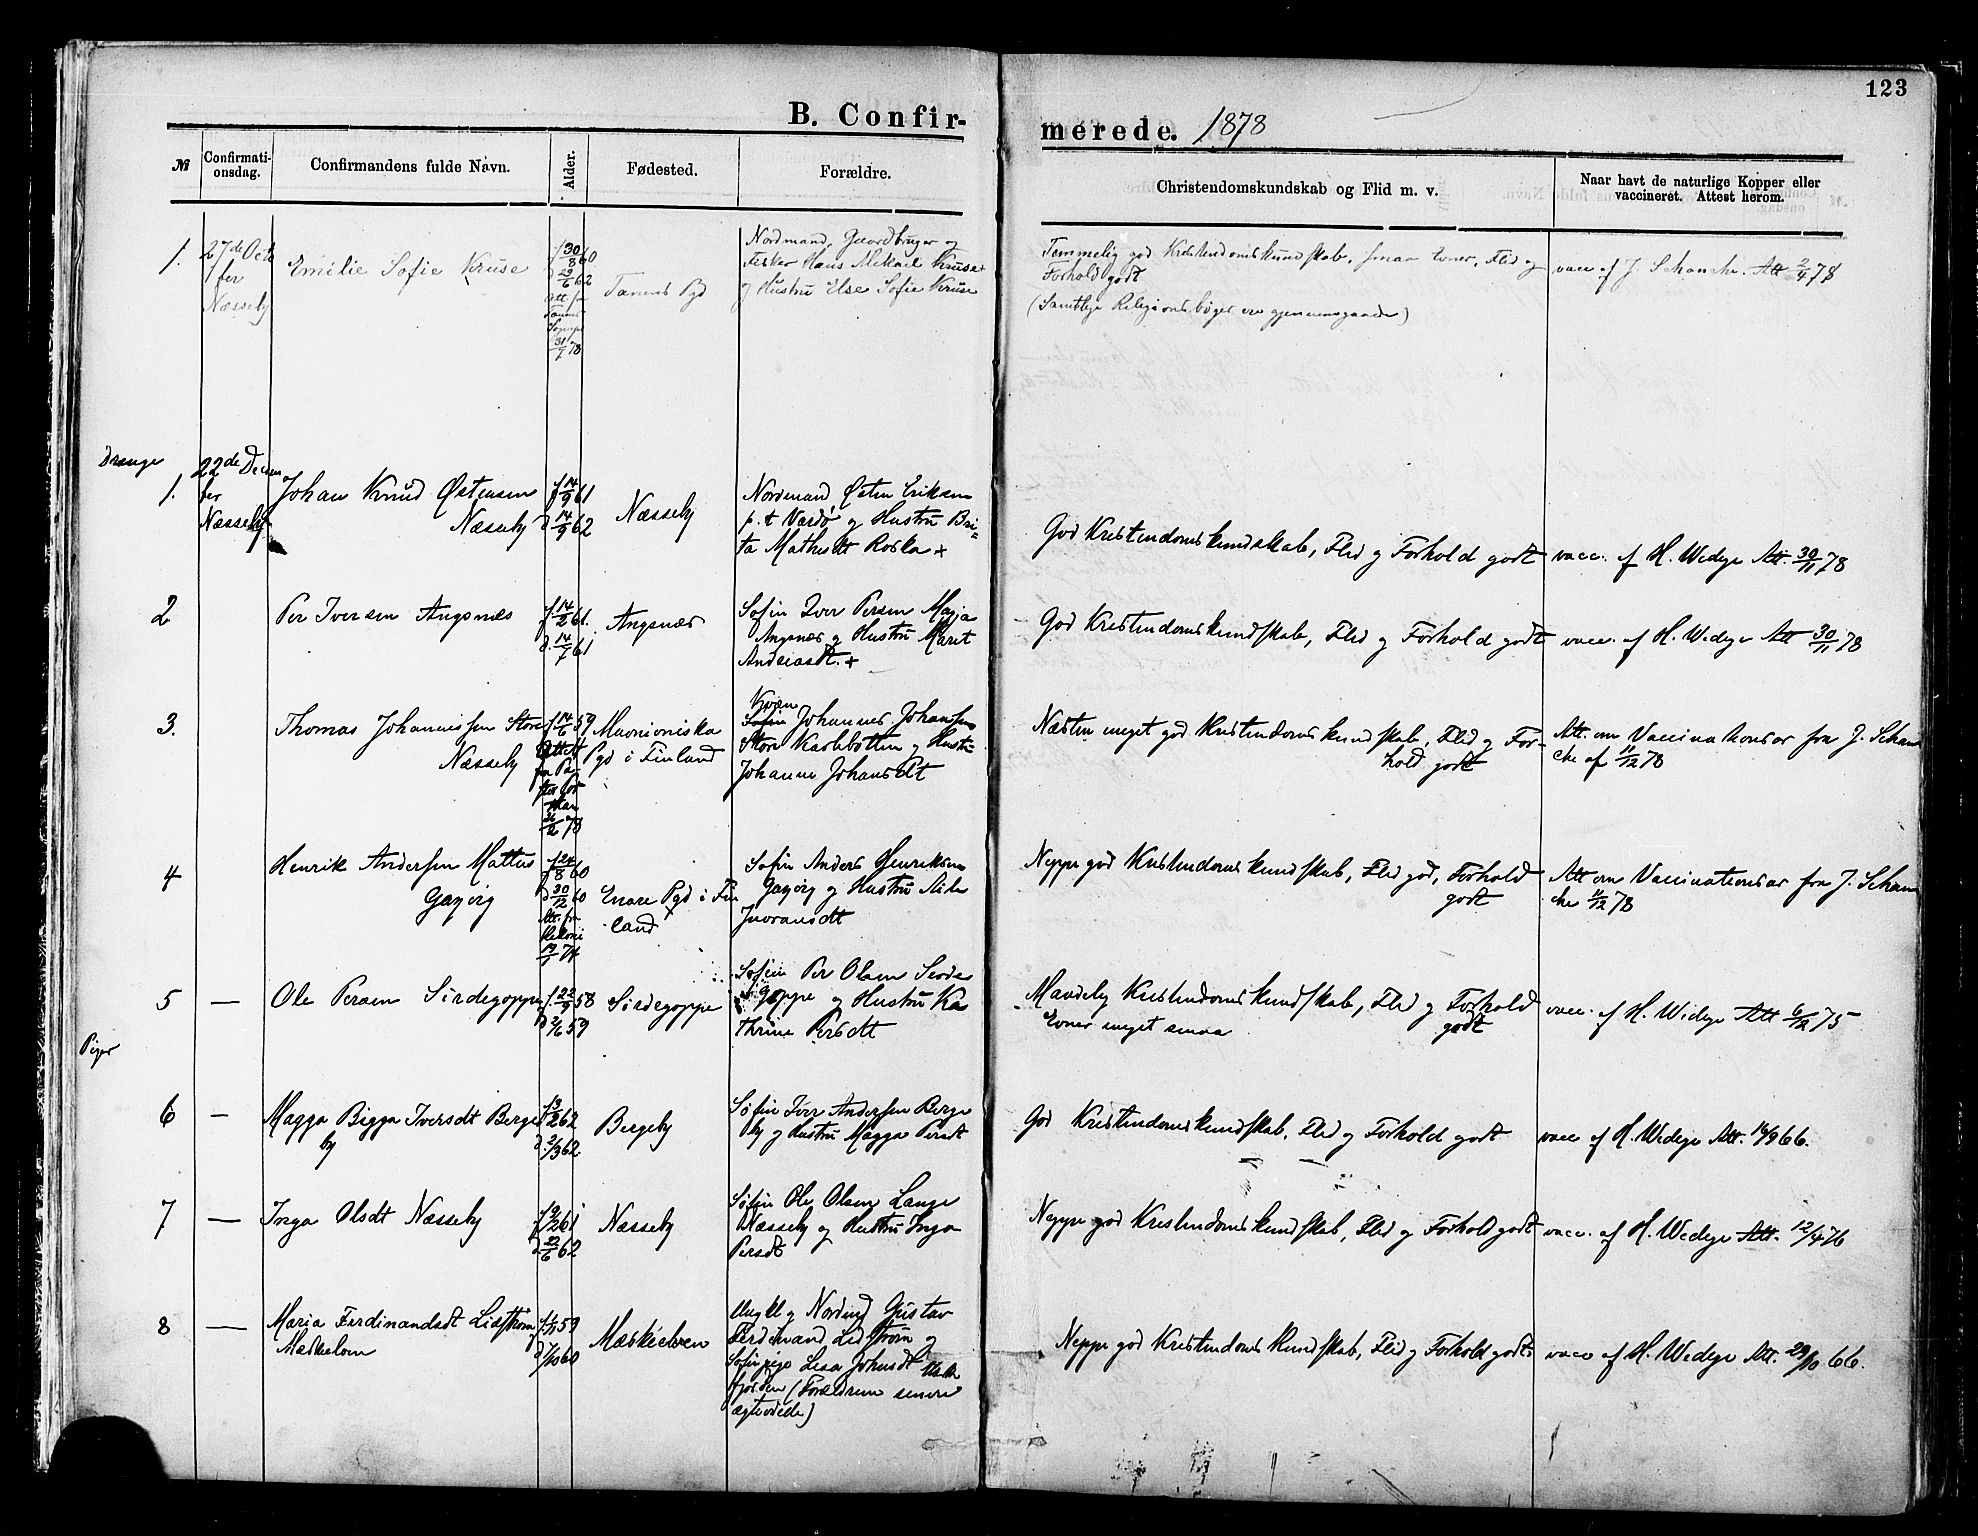 123
B. Confirmerede. 1878
№ Confirmationsdag. Confirmandens fulde Navn. Alder. Fødested. Forældre. Christendomskundskab og Flid m. v. Naar havt de naturlige Kopper eller vaccineret. Attest herom.
1. 27de Octo
ber
Næsseby
Emilie Sofie Kruse
f 30/8 60
d 29/6 62
Att. fra
31/7 78
Tanens Pgd
Nordmand, Gaardbruger og
Fisker Hans Mikael Kruse
og Hustru Else Sofie Kruse
Temmelig god Kristendomskundskab, smaa Evner, Flid og
Forhold godt
(Samtlige Religionsbøger ere gjennemgaaede)
vacc. af J. Schanche. Att 2/4 78
Drenge
1. 22de Decem
ber
Næsseby
Johan Knud Østensen
Næsseby
f 14/9 61
d 14/9 62
Næsseby
Nordmand Østen Eriksen
p. t Vardø og Hustru Bri=
ta Mathisdt Roska +
God Kristendomskundskab, Flid og Forhold godt
vacc. af H. Wedege Att. 30/11 78
2 Per Iversen Angsnæs
f. 14/2 61.
d. 14/7 61
Angsnæs
Sofin Iver Persen Magja
Angsnæs og Hustru Marit
Andreasdt. +
God Kristendomskundskab, Flid og Forhold godt
vacc. af H. Wedege Att 30/11 78
3. Thomas Johannessen Store
Næsseby
f 14/6 59
Attest
fra Pa-
stor
78
Muonioniska
Pgd i Finland
Kvæn
Sofin Johannes Johansen
Store Karlebotten og Hustru
Johanne Johansdt
Næsten meget god Kristendomskundskab, Flid og For-
hold godt
Att. om Vaccinationsar fra J. Schan
che af 11/12 78
4 Henrik Andersen Mattus
f 24/8 60
d 30/12 60
Att. fra
74
Enare Pgd i Fin
land
Sofin Anders Henriksen
og Hustru
Neppe god Kristendomskundskab, Flid god, Forhold
godt
Att om Vaccinationsar fra J. Schan
che 11/12 78
5 — Ole Persen Sirdegoppe
f. 22/9 58
d 2/6 59
Sirdegoppe
Sofin Per Olsen Sirde
goppe og Hustru Ka
thrine Persdt
Maadelig Kristendomskundskab, Flid og Forhold
godt
Evner meget smaa
vacc. af H. Wedege Att 6/12 75
Piger
6 — Magga Bigga Iversdt Berge
by
f 3/2 62
d. 2/3 62
Bergeby
Søfin Iver Andersen Berge
by og Hustru Magga Persdt
God Kristendomskundskab. Flid og Forhold godt
vacc af H. Wedege Att. 14/9 66.
7 — Inga Olsdt Næsseby
f 9/2 61
d 22/6 62
Næsseby
Søfin Ole Olsen Lange
Næsseby og Hustru Inga
Persdt
Neppe god Kristendomskundskab, Flid og Forhold godt
vacc. af H. Wedege Att. 12/4 76
8 — Maria Ferdinandsdt Lidstrøm
Mæskelven
59
60
Mæskelven
Ungkl og Nordmd Gustav
Ferdinand Lidstrøm og
Sofinpige Lisa Johnsdt
fjorden (Forældrene senere
ægteviede)
Neppe god Kristendomskundskab, Flid og Forhold godt
vacc af H. Wedege Att. 29/10 66.